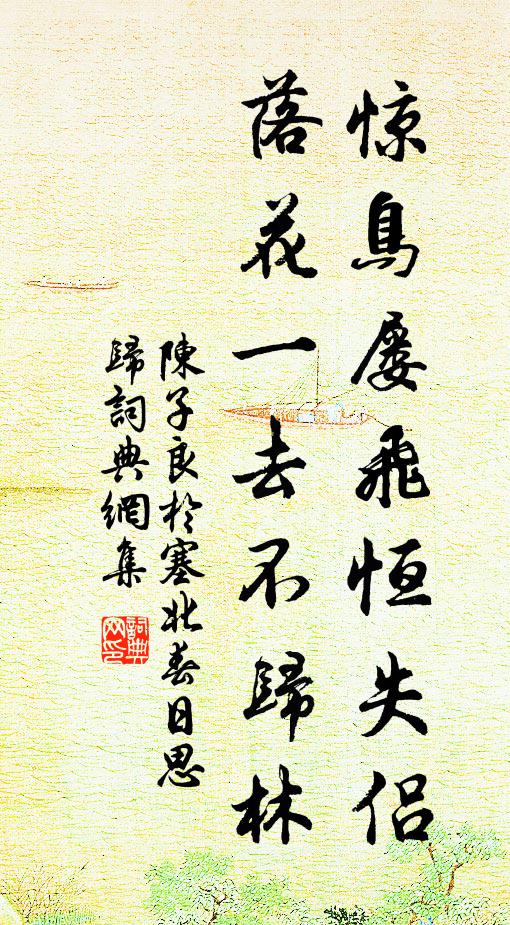 惊鳥屡飛恒失侣
落花一去不歸林
陳子良於塞北春日思
歸詞典網集
詞典
网印